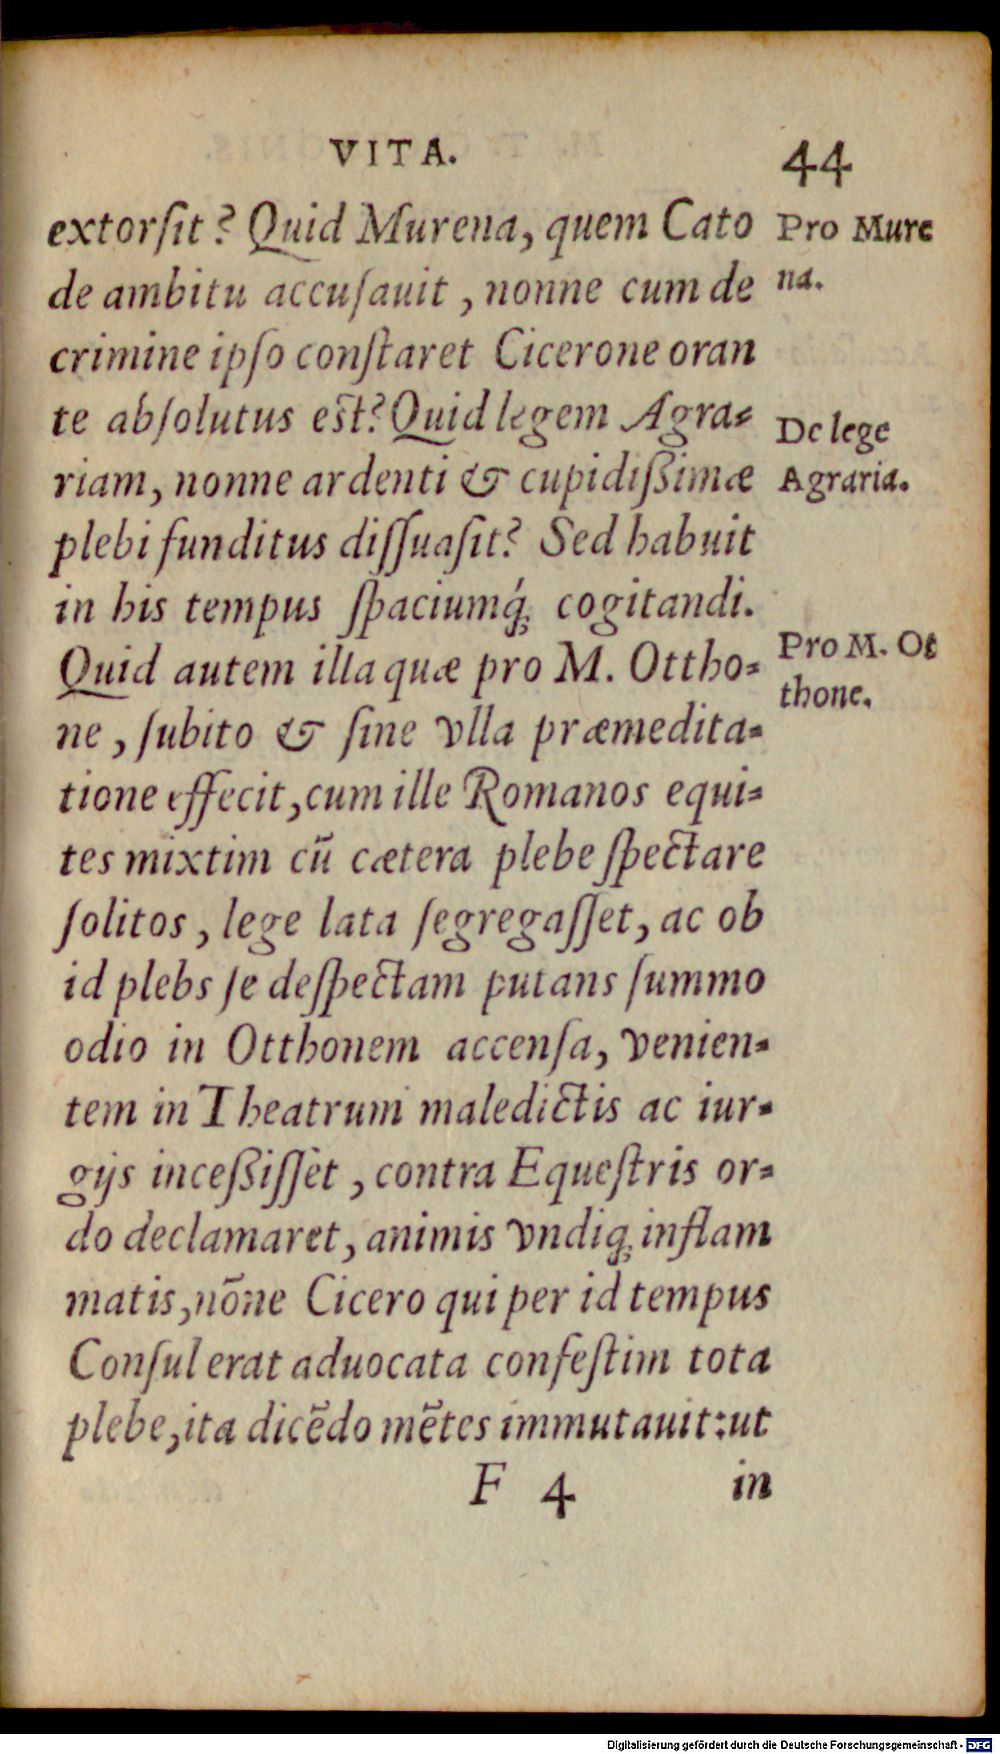 VITA. 44
extorſit? Quid Murena, quem Cato
de ambitu accuſauit, nonne cum de
crimine ipſo conſtaret Cicerone oran
te abſolutus est? Quid legem Agra-
riam, nonne ardenti & cupidißimæ
plebi funditus diſſuaſit? Sed habuit
in his tempus ſpaciumq́; cogitandi.
Quid autem illa quæ pro M. Ottho-
ne, ſubito & ſine vlla præmedita-
tione effecit, cum ille Romanos equi-
tes mixtim cū cætera plebe ſpectare
ſolitos, lege lata ſegregaſſet, ac ob
id plebs ſe deſpectam putans ſummo
odio in Otthonem accenſa, venien-
tem in Theatrum maledictis ac iur-
gijs inceßiſſet, contra Equeſtris or-
do declamaret, animis vndiq; inflam
matis, nōne Cicero qui per id tempus
Conſul erat aduocata confeſtim tota
plebe, ita dicēdo mētes immutauit: ut
F 4 in
Pro Mure
na.
De lege
Agraria.
Pro M. Ot
thone.
Digitalisierung gefördert durch die Deutsche Forschungsgemeinschaft - DFG